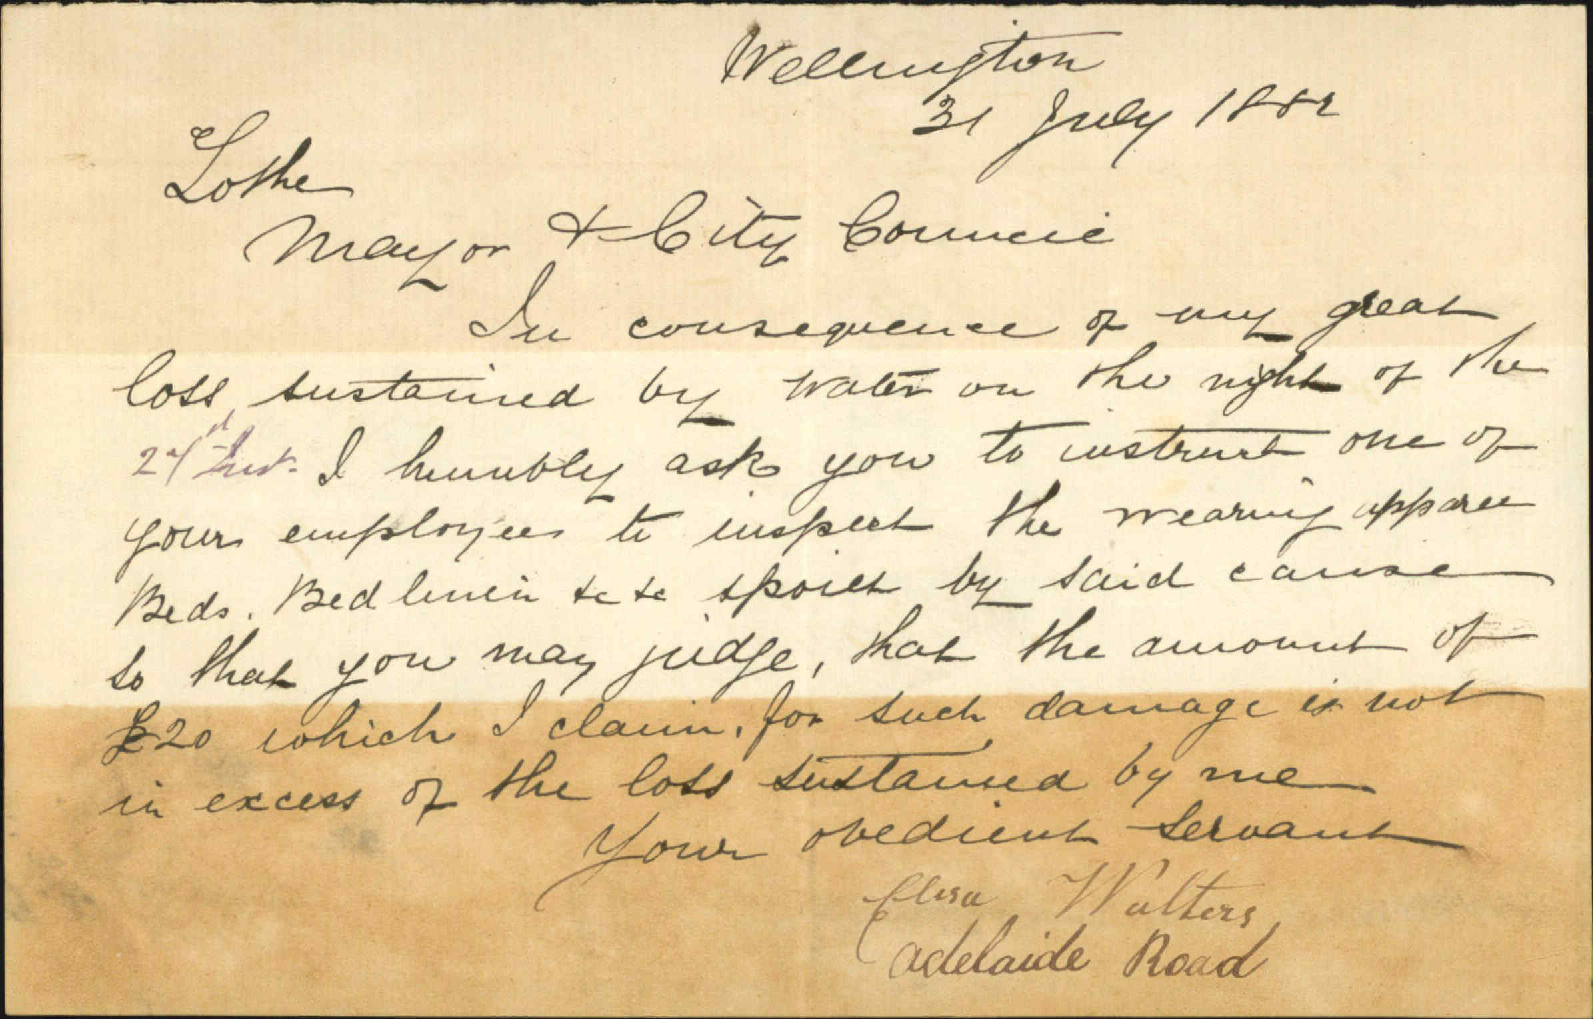 Wellington
31 July 1882
To the
Mayor & City Council
In consequence of my great
loss, sustained by water on the night of the
Inst. I humbly ask you to instruct one of
your employees to inspect the wearing apparel
Beds. Bed linen &c &c spoilt by said cause
so that you may judge, that the amount of
£20 which I claim, for such damage is not
in excess of the loss sustained by me
Your obedient servant
Elisa Walters
Adelaide Road